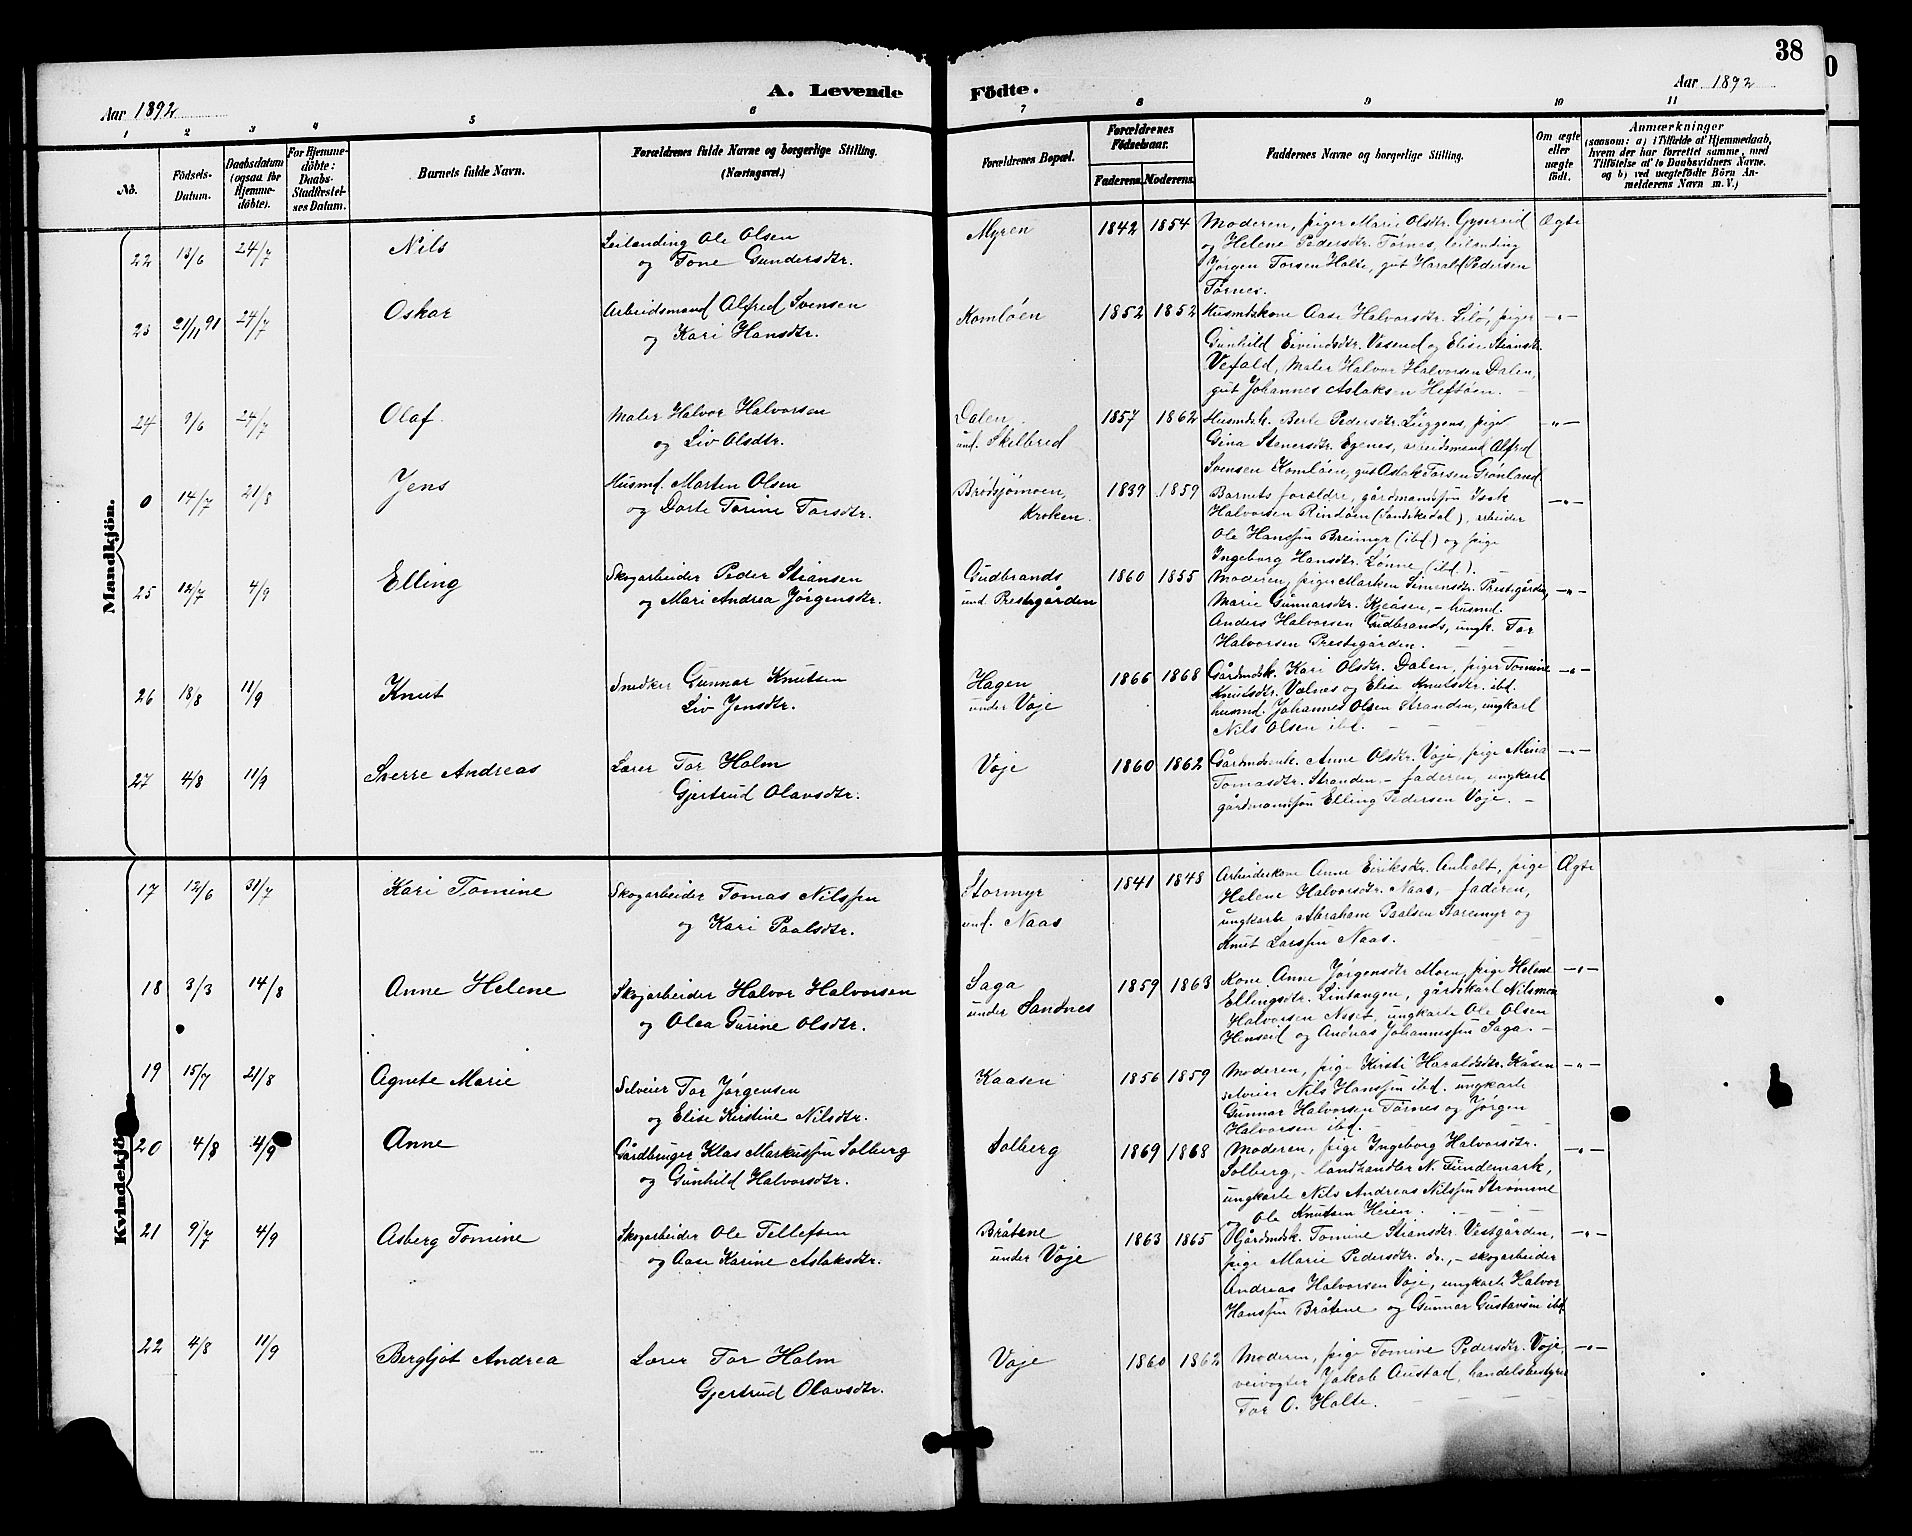 38
Aar 1892
A. Levende Födte.
Aar 1892
1 2 3 4 5 6 7 8 9 10 11
No.
Födsels-Datum.
Daabsdatum (ogsaa för Hjemme-döbte).
For Hjemme-döbte: Daabs-Stadfæstel-ses Datum.
Barnets fulde Navn.
Forældrenes fulde Navne og borgerlige Stilling. (Næringsvei.)
Forældrenes Bopæl.
Forældrenes Födselsaar.
Faderens. Moderens.
Faddernes Navne og borgerlige Stilling.
Om ægte eller uægte födt.
Anmærkninger
(saasom: a) i Tilfælde af Hjemmedaab, hvem der har forrettet samme, med Tilföielse af to Daabsvidners Navne, og b) ved uægtefödte Börn An-melderens Navn m. V.)
Mandkjön.
22 13/6 24/7 Nils
Leilending Ole Olsen
og Tone Gundersdtr.
Myren
1842 1854
Moderen, piger Mari Olsdtr. Gysereid
og Helene Pedersdtr. Tørnes, leilending
Jørgen Torsen Holte, gut Harald Pedersen
Tørnes.
Ægte
23 21/11 91 24/7 Oskar
Arbeidsmand Alfred Svensen
og Kari Hansdtr.
Komløen
1852 1852
Husmdskone Aase Halvorsdtr. Lilø, piger
Gunhild Eivindsdtr. Vasend og Elise Stiansdtr.
Vefald, Maler Halvor Halvorsen Dalen,
gut Johannes Aslaksen Heftøen. -
-"-
24 9/6 24/7 Olaf
Maler Halvor Halvorsen
og Liv Olsdtr.
Dalen,
und. Skilbred
1857 1862
Husmdsk. Berte Pedersdtr. Liggens, pige
Gina Stenersdtr. Egenes, arbeidsmand Alfred
Svensen Komløen, gut Aslak Torsen Grønland
-"-
0 14/7 21/8 Jens
Husmd. Morten Olsen
og Dorte Torine Torsdtr.
Brødsjømoen,
Kroken.
1839 1859
Barnets foraldre, gårdmandssøn Isak
Halvorsen Rindøen (Sandøkedal), arbeider
Ole Hanssøn Breimyr (ibd.) og pige
Ingeborg Hansdtr. Lønne (ibd.).
-"-
25 12/7 4/9 Elling
Skogarbeider Peder Stiansen
og Mari Andrea Jørgensdtr.
Gudbrands
und. Prestegården
1860 1855
Moderen, piger Marken Simensdtr. Prestegården,
Marie Gunnarsdtr. Kjeåsen, - husmd.
Anders Halvorsen Gudbrands, ungk. Tor
Halvorsen Prestegården. -
-"-
26 18/8 11/9 Knut
Snedker Gunnar Knutsen
Liv Jensdtr.
Hagen
under Voje
1866 1868
Gårdmdsk. Kari Olsdtr. Dalen, piger Tomine
Knutsdtr. Valnes og Elise Knutsdtr. ibd.
husmd. Johannes Olsen Stranden, ungkarl
Nils Olsen ibd. - -
-"-
27 4/8 11/9 Sverre Andreas
Lærer Tor Holm
Gjertrud Olavsdtr.
Voje
1860 1862
Gårdmdenk. Anne Olsdtr. Voje, pige Mina
Tomasdtr. Stranden. - faderen, ungkarl
gårdmanssøn Elling Pedersen Voje. -
-"-
Kvindekjö
17 12/6 31/7 Kari Tomine
Skogarbeider Tomas Nilssen
og Kari Paalsdtr.
Stormyr
und. Naas
1841 1848
Arbeiderkone Anne Eiriksdtr. Anholt, pige
Helene Halvorsdtr. Naas, - faderen,
ungkarle Abraham Paalsen Storemyr og
Knut Larssen Naas. - -
Ægte
18 3/3 14/8 Anne Helene
Skogarbeider Halvor Halvorsen
og Olea Gurine Olsdtr.
Saga
under Sandnes
1859 1863
Kone Anne Jørgensdtr Moen, pige Helene
Ellingsdtr. Lintangen, gårdskarl Nilsmon
Halvorsen Næset, ungkarle Ole Olsen
Henseid og Andreas Johannessen Saga. -
-"-
19 15/7 21/8 Agnete Marie
Selveier Tor Jørgensen
og Elise Kirstine Nilsdtr.
Kaasen
1856 1859
Moderen, pige Kirsti Haraldsdtr. Kåsen
selveier Nils Hanssen ibd. ungkarle
Gunnar Halvorsen Tørnes og Jørgen
Halvorsen ibd. - -
-"-
20 4/8 4/9 Anne
Gårdbruger Klas Markussen Solberg
og Gunhild Halvorsdtr.
Solberg
1869 1868
Moderen, pige Ingeborg Halvorsdtr.
Solberg, - landhandler N. Fundemark,
ungkarle Nils Andreas Nilssen Strømme
Ole Knutsen Heien. - -
-"-
21 9/7 4/9 Asberg Tomine
Skogarbeider Ole Tellefsen
og Aase Karine Aslaksdtr.
Bråtene
under Voje
1863 1865
Gårdmdsk. Tomine Stiansdtr. Vestgården,
pige Marie Pedersdtr. do., - skogarbeider
Andreas Halvorsen Voje, ungkarle Halvor
Hanssen Bråtene og Gunnar Gustavsen ibd
-"-
22 4/8 11/9 Bergljot Andrea
Lærer Tor Holm
Gjertrud Olavsdtr.
Voje
1860 1862
Moderen, pige Tomine Pedersdtr. Voje,
veivogter Jakob Austad, handelsbestyrer
Tor O. Holte. - -
-"-